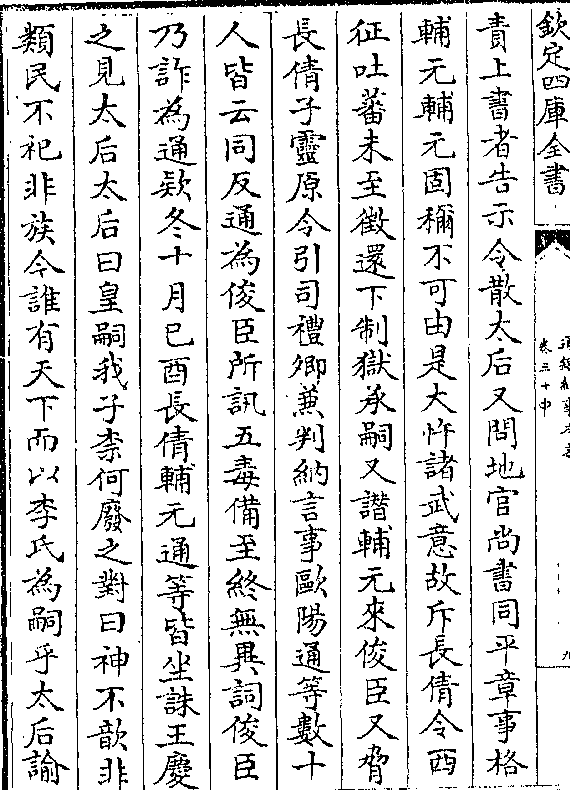 欽定四庫全書
責上書者告示令散太后又問地官尚書同平章事格
輔元輔元固稱不可由是大忤諸武意故斥長倩令西
征吐蕃未至徵還下制獄承嗣又譖輔元來俊臣又脅
長倩子靈原令引司禮卿兼判納言事歐陽通等數十
人皆云同反通為俊臣所訊五毒備至終無異詞俊臣
乃詐為通欵冬十月己酉長倩輔元通等皆坐誅王慶
之見太后太后曰皇嗣我子柰何廢之對曰神不歆非
類民不祀非族今誰有天下而以李氏為嗣乎太后諭